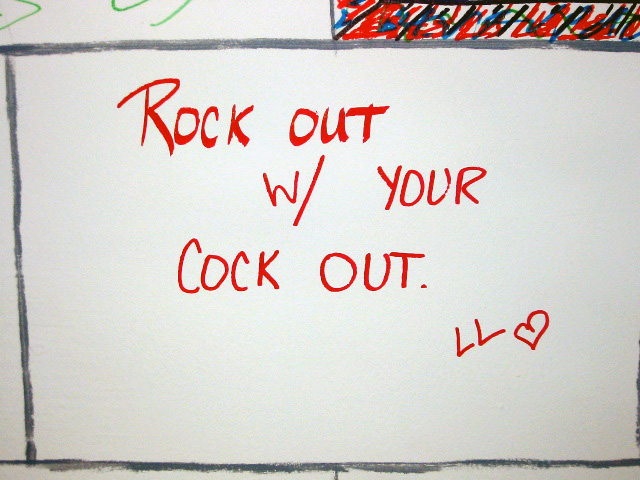 ROCK OUT
W/ YOUR
COCK OUT.
LL♡